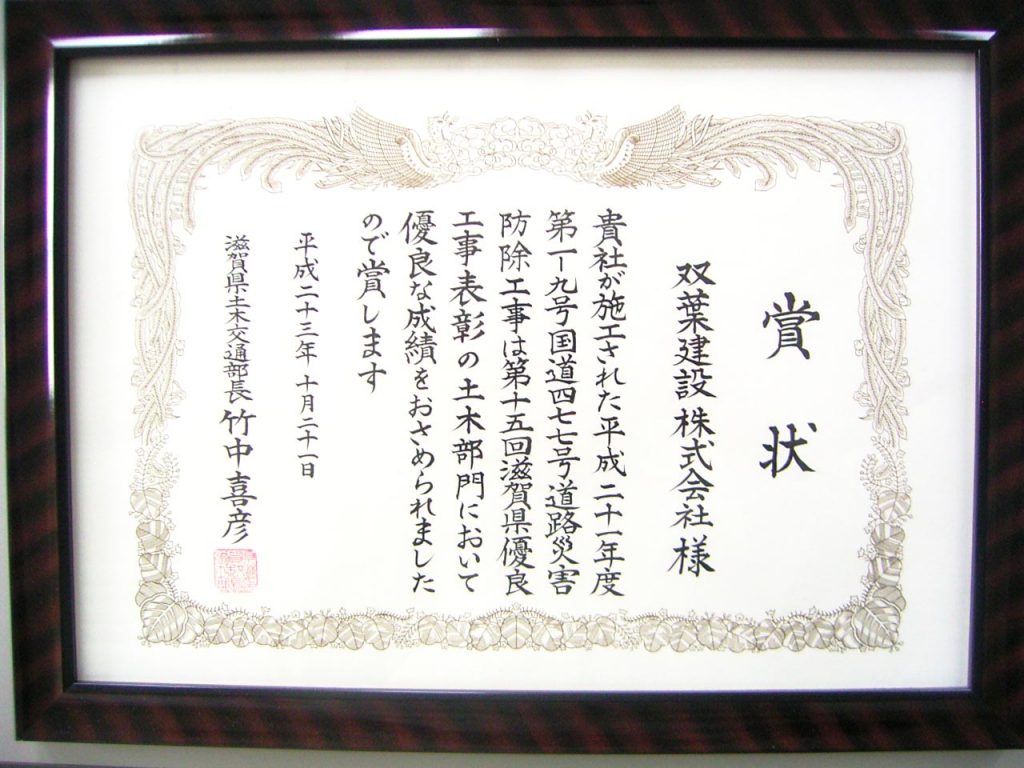 賞状
双葉建設株式会社様
貴社が施工された平成二十一年度
第一ー九号国道四七七号道路災害
防除工事は第十五回滋賀県優良
工事表彰の土木部門において
優良な成績をおさめられました
ので賞します
平成二十三年十月二十一日
滋賀県土木交通部長竹中喜彦